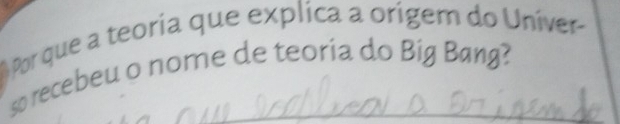 Por que a teoria que explica a origem do Univer-
so recebeu o nome de teoria do Big Bang?
que a origem do